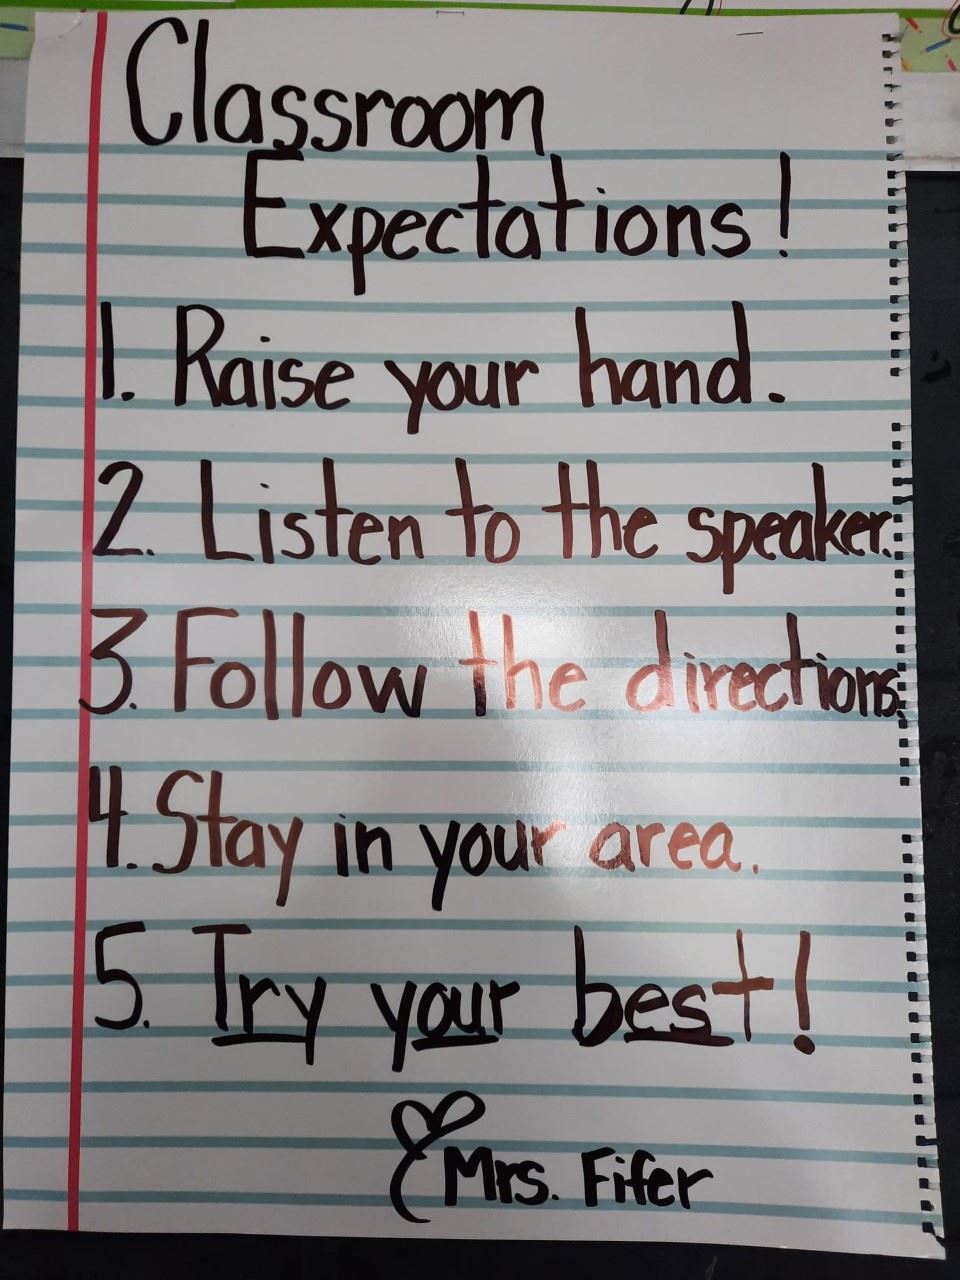 Classroom
Expectations!
1. Raise your hand.
2. Listen to the speaker.
3. Follow the directions.
4. Stay in your area.
5. Try your best!
Mrs. Fifer